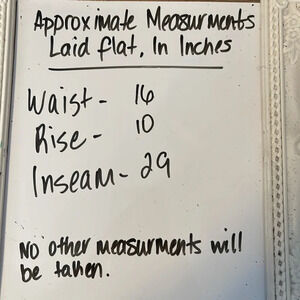 Approximate Measurments
Laid flat, In Inches
Waist - 16
Rise - 10
Inseam - 29
No other measurments will
be taken.